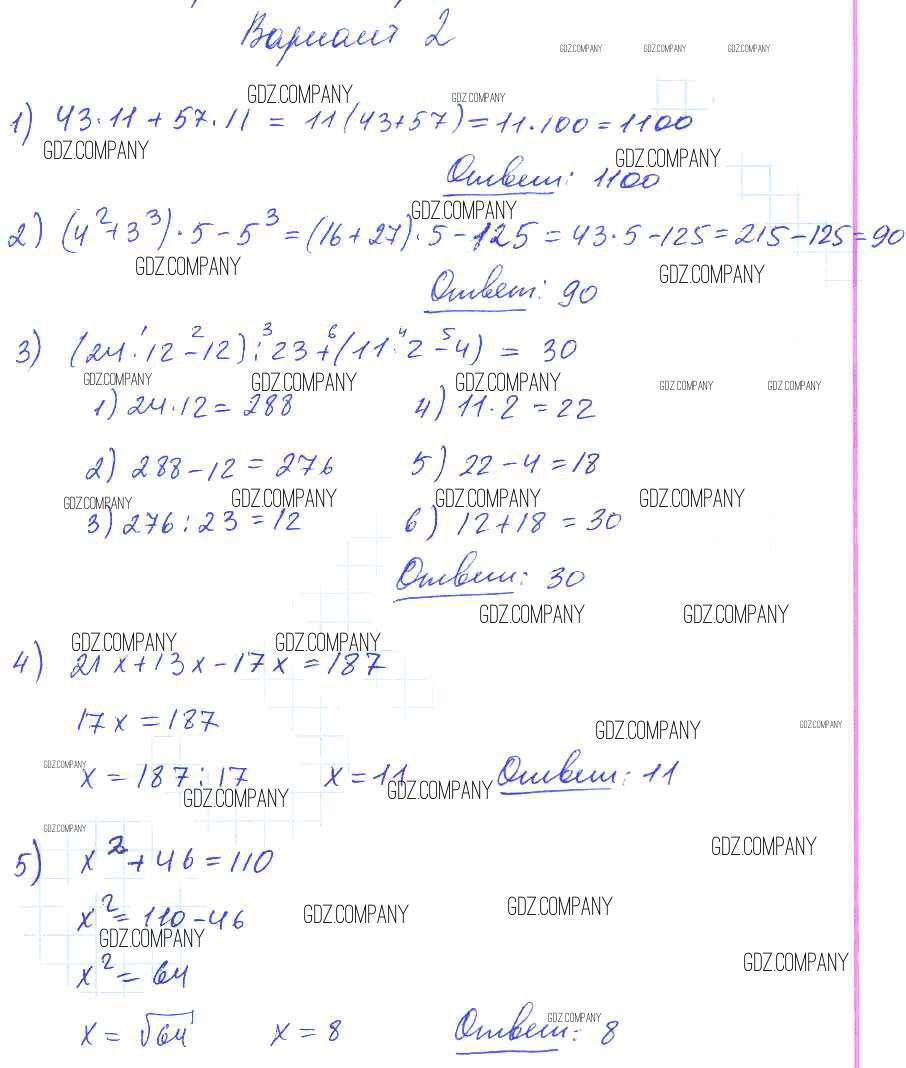 Вариант 2
GDZ.COMPANY GDZ.COMPANY GDZ.COMPANY
GDZ.COMPANY GDZ.COMPANY
1) 43·11 + 57·11 = 11(43+57) = 11·100 = 1100
GDZ.COMPANY GDZ.COMPANY
Ответ: 1100
GDZ.COMPANY
2) (4²+3³)·5 - 5³ = (16+27)·5 - 125 = 43·5 - 125 = 215 - 125 = 90
GDZ.COMPANY GDZ.COMPANY
Ответ: 90
1 2 3 6 4 5
3) (24·12 - 12) : 23 + (11·2 - 4) = 30
GDZ.COMPANY GDZ.COMPANY GDZ.COMPANY GDZ.COMPANY GDZ.COMPANY
1) 24·12 = 288 4) 11·2 = 22
2) 288 - 12 = 276 5) 22 - 4 = 18
GDZ.COMPANY GDZ.COMPANY GDZ.COMPANY GDZ.COMPANY
3) 276 : 23 = 12 6) 12 + 18 = 30
Ответ: 30
GDZ.COMPANY GDZ.COMPANY
GDZ.COMPANY GDZ.COMPANY
4) 21x + 13x - 17x = 187
17x = 187
GDZ.COMPANY GDZ.COMPANY
GDZ.COMPANY
x = 187 : 17 x = 11 Ответ: 11
GDZ.COMPANY GDZ.COMPANY
GDZ.COMPANY
GDZ.COMPANY
5) x² + 46 = 110
x² = 110 - 46
GDZ.COMPANY GDZ.COMPANY
GDZ.COMPANY
GDZ.COMPANY
x² = 64
GDZ.COMPANY
x = √64 x = 8 Ответ: 8